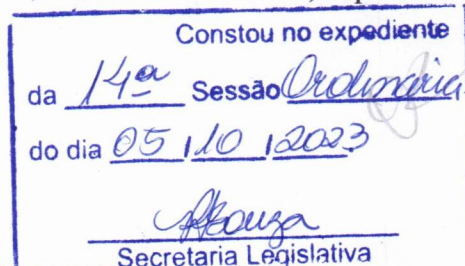 Constou no expediente
da 14ª Sessão Ordinária
do dia 05 / 10 / 2023
Secretaria Legislativa